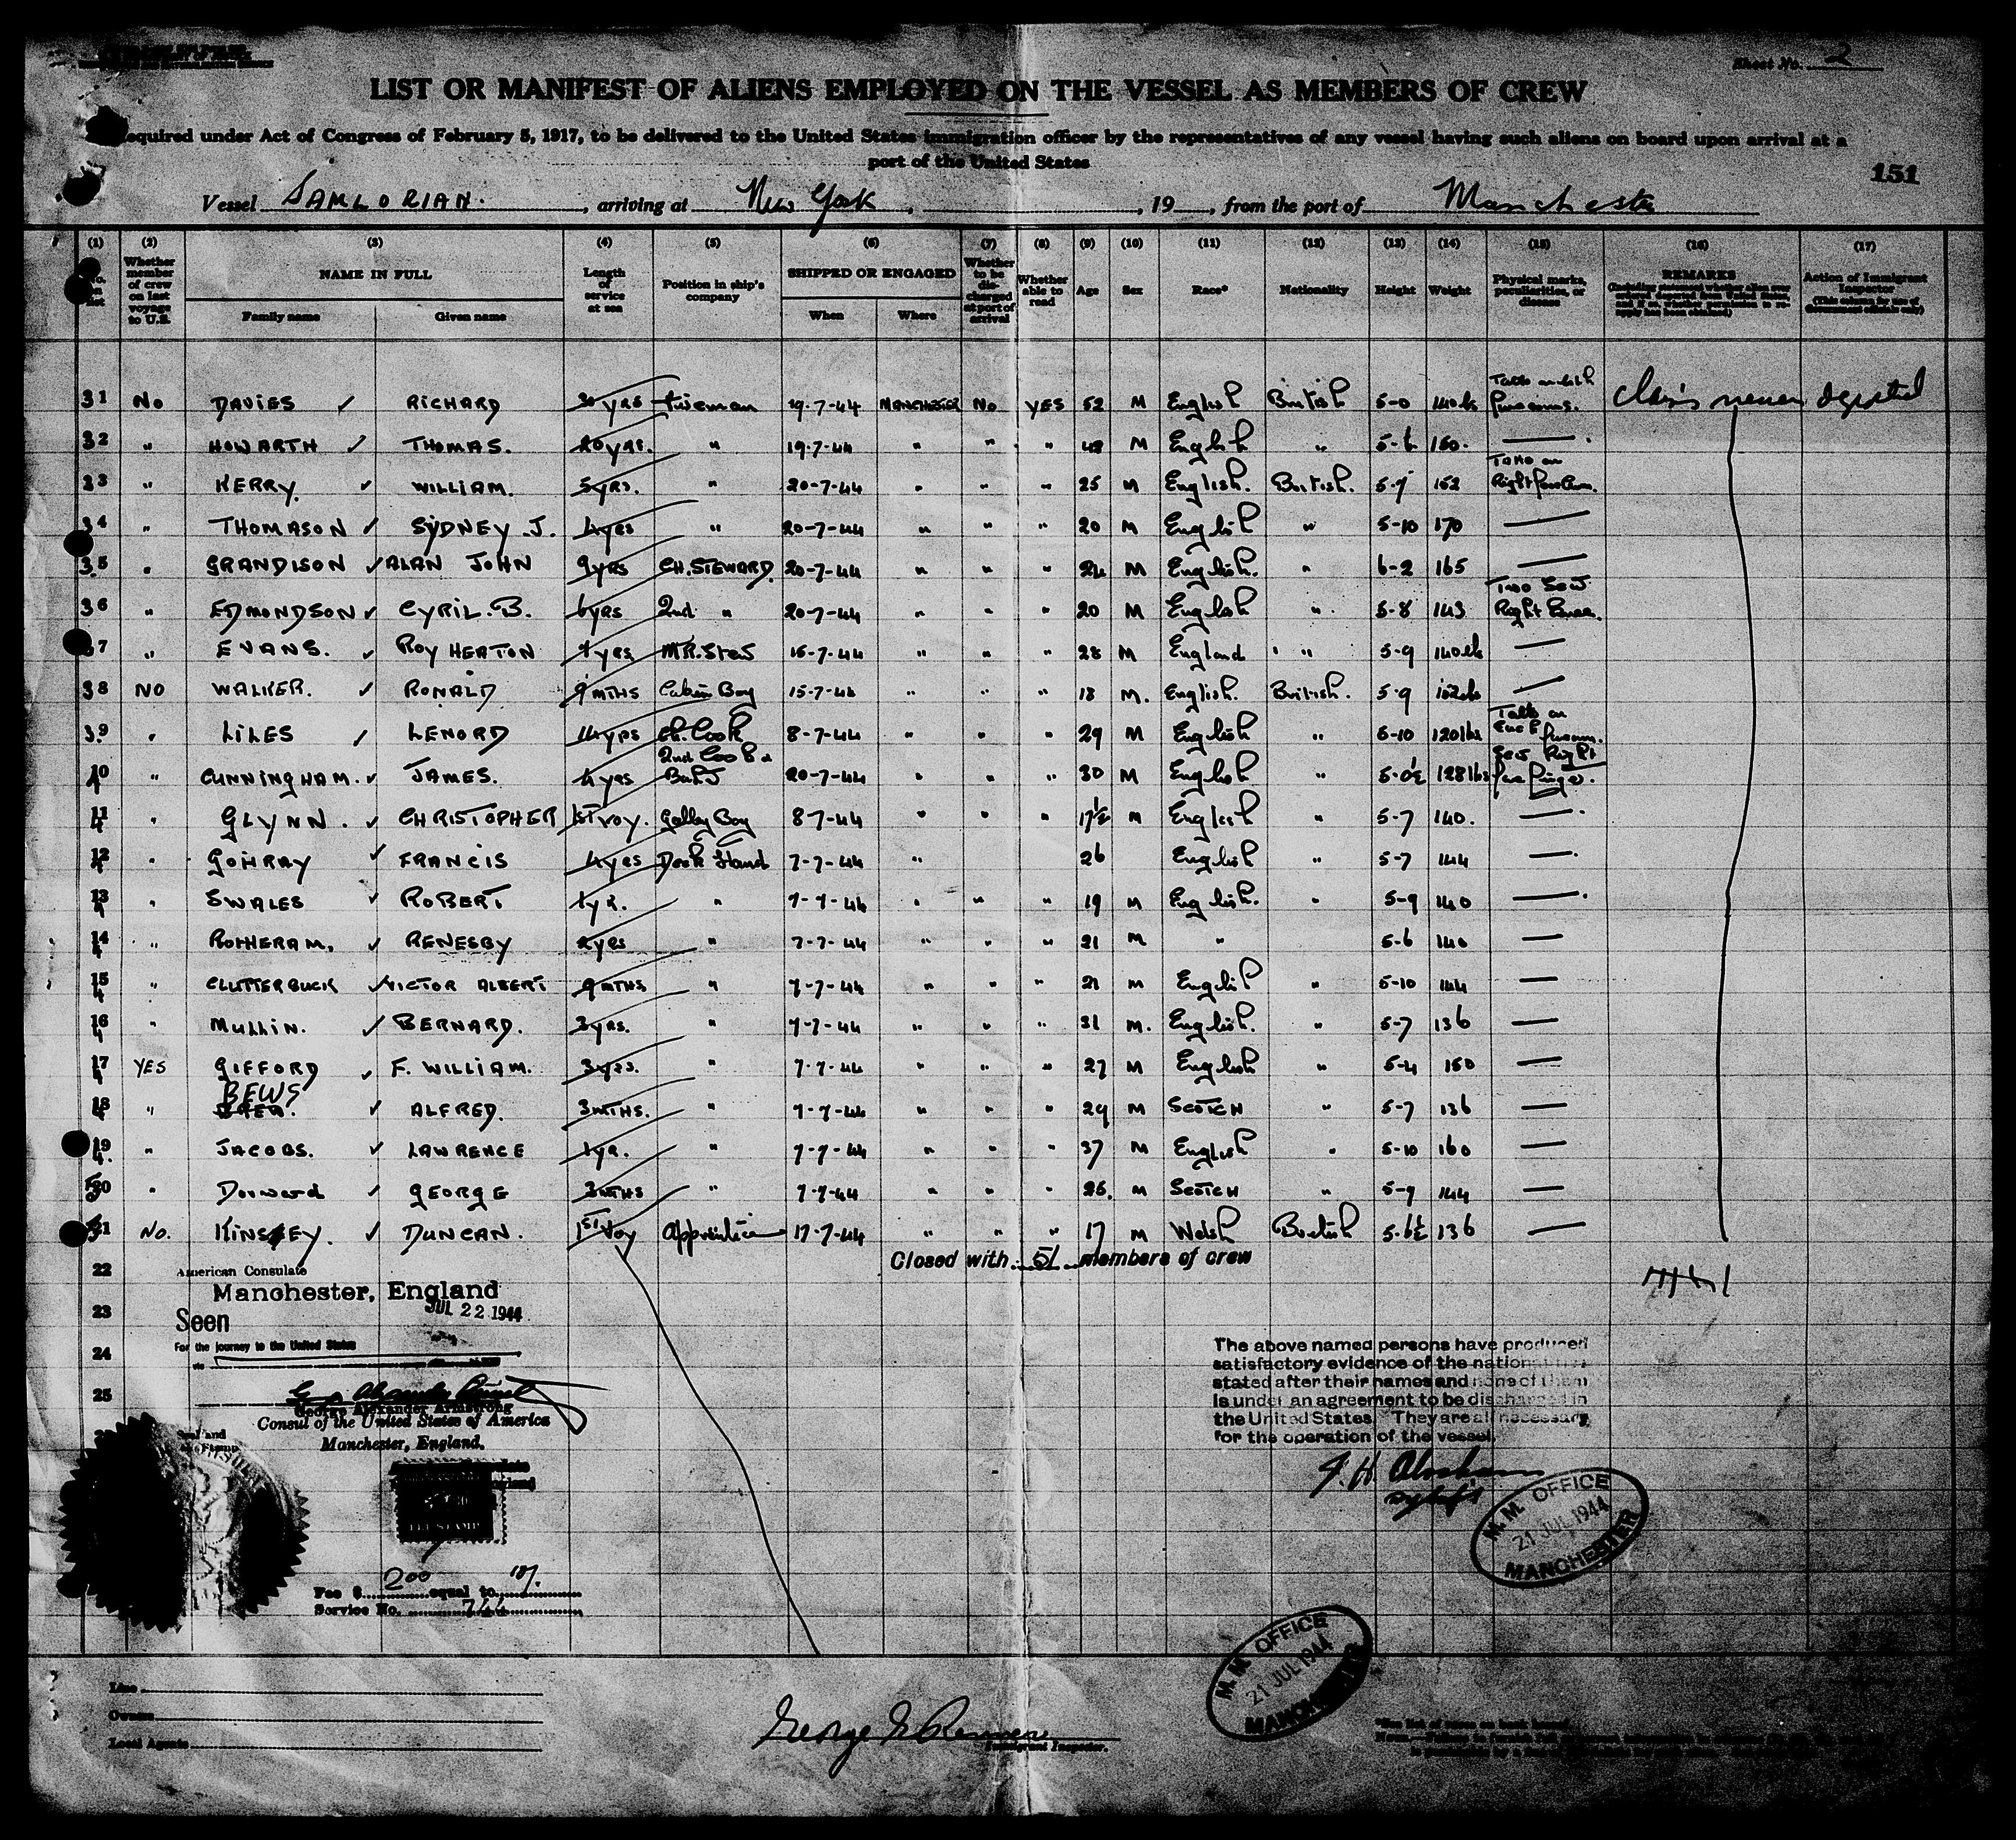 Sheet No. 2
LIST OR MANIFEST OF ALIENS EMPLOYED ON THE VESSEL AS MEMBERS OF CREW
equired under Act of Congress of February 5, 1917, to be delivered to the United States immigration officer by the representatives of any vessel having such aliens on board upon arrival at a
port of the United States
151
Vessel SAMLORIAN. , arriving at New York , , 19 , from the port of Manchester
(1) (2) (3) (4) (5) (6) (7) (8) (9) (10) (11) (12) (13) (14) (15) (16) (17)
No. on list Whether member of crew on last voyage to U.S. NAME IN FULL Family name Given name Length of service at sea Position in ship's company SHIPPED OR ENGAGED When Where Whether to be discharged at port of arrival Whether able to read Age Sex Race* Nationality Height Weight Physical marks, peculiarities, or disease REMARKS Action of Immigrant Inspector
31 No DAVIES ✓ RICHARD 30 yrs Fireman 19-7-44 MANCHESTER No YES 52 M English British 5-0 140lbs Tatto on both forearms. claims never deported
32 " HOWARTH ✓ THOMAS. 20 yrs. " 19-7-44 " " " 42 M English " 5-6 160. —
33 " KERRY. ✓ WILLIAM. 5yrs. " 20-7-44 " " " 25 M English. British. 5-7 152 Tatto on Right forearm.
34 " THOMASON ✓ SYDNEY J. 4yrs " 20-7-44 " " " 20 M English " 5-10 170 —
35 " GRANDISON ✓ ALAN JOHN 9yrs CH. STEWARD. 20-7-44 " " " 24 M English. " 6-2 165 —
36 " EDMONDSON ✓ CYRIL. B. 6yrs 2nd " 20-7-44 " " " 20 M English " 5-8 143 Right
37 " EVANS. ✓ ROY HERTON 4yrs 15-7-44 " " " 28 M England " 5-9 140lbs —
38 NO WALKER. ✓ RONALD 9 MTHS Cabin Boy 15-7-44 " " " 18 M. English. British. 5-9 102lbs —
39 " LILES ✓ LENORD 14yrs Ch. Cook 8-7-44 " " " 29 M English " 5-10 120lbs Tatto on Each forearm.
40 " CUNNINGHAM. ✓ JAMES. 4yrs 2nd Cook & 20-7-44 " " " 30 M English " 5-0½ 128lbs Right
41 " GLYNN. ✓ CHRISTOPHER 1ST VOY. Galley Boy 8-7-44 " " " 17½ M English " 5-7 140. —
42 " GOHRAY ✓ FRANCIS 4yrs Deck Hand 7-7-44 " 26 English " 5-7 144 —
43 " SWALES ✓ ROBERT 1yr. " 7-7-44 " " " 19 M English. " 5-9 140 —
44 " ROTHERAM. ✓ RENESBY 2yrs " 7-7-44 " " " 21 M " 5-6 140 —
45 " CLUTTERBUCK ✓ VICTOR ALBERT 9MTHS " 7-7-44 " " " 21 M English " 5-10 144 —
46 " MULLIN. ✓ BERNARD. 3yrs. " 7-7-44 " " " 31 M. English. " 5-7 136 —
47 YES GIFFORD ✓ F. WILLIAM. 3yrs. " 7-7-44 " " " 27 M English " 5-4 150 —
48 " BEWS ✓ ALFRED. 3MTHS. " 7-7-44 " " " 29 M SCOTCH " 5-7 136 —
49 " JACOBS. ✓ LAWRENCE 1yr. " 7-7-44 " " " 37 M English " 5-10 160 —
50 " Dorward ✓ GEORGE 3MTHS " 7-7-44 " " " 26. M SCOTCH " 5-7 144 —
51 No. KINSEY ✓ DUNCAN. 1ST Voy Apprentice 17-7-44 " " " 17 M Welsh British 5-6½ 136 —
22 Closed with 51 members of crew
American Consulate
Manchester, England
23 JUL 22 1944
Seen
For the journey to the United States
24
via
25
George Alexander Armstrong
Consul of the United States of America
Manchester, England.
The above named persons have produced
satisfactory evidence of the nationalities
stated after their names and none of them
is under an agreement to be discharged in
the United States. They are all necessary
for the operation of the vessel.
J. H. Abraham
M.M. OFFICE
21 JUL 1944
MANCHESTER
FEE STAMP
Fee $ 2.00 equal to 10/.
Service No. 744
M.M. OFFICE
21 JUL 1944
MANCHESTER
Line
Owners
Local Agents
Immigrant Inspector.